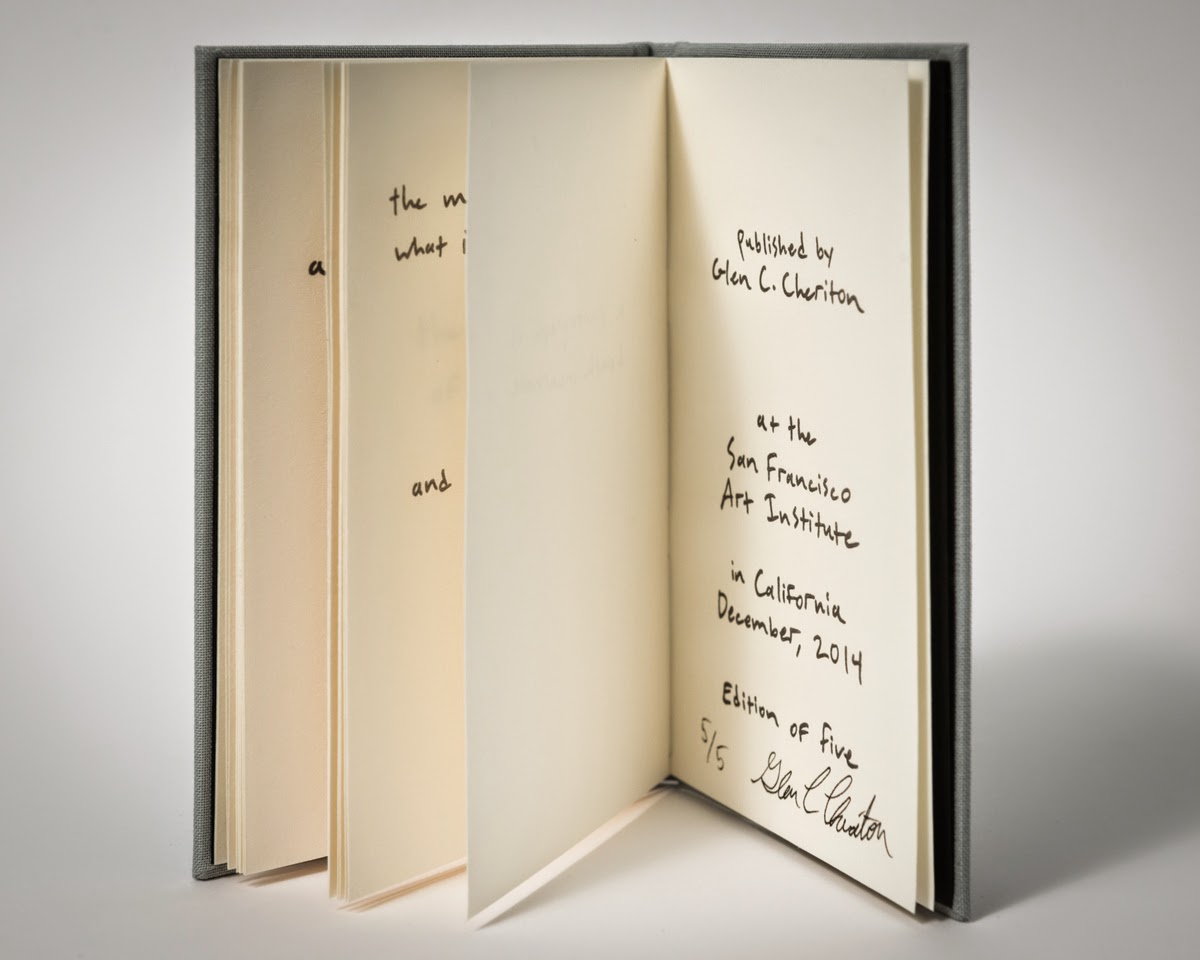 a
the m
what i
and
published by
Glen C. Cheriton
at the
San Francisco
Art Institute
in California
December, 2014
Edition of five
5/5
Glen C Cheriton